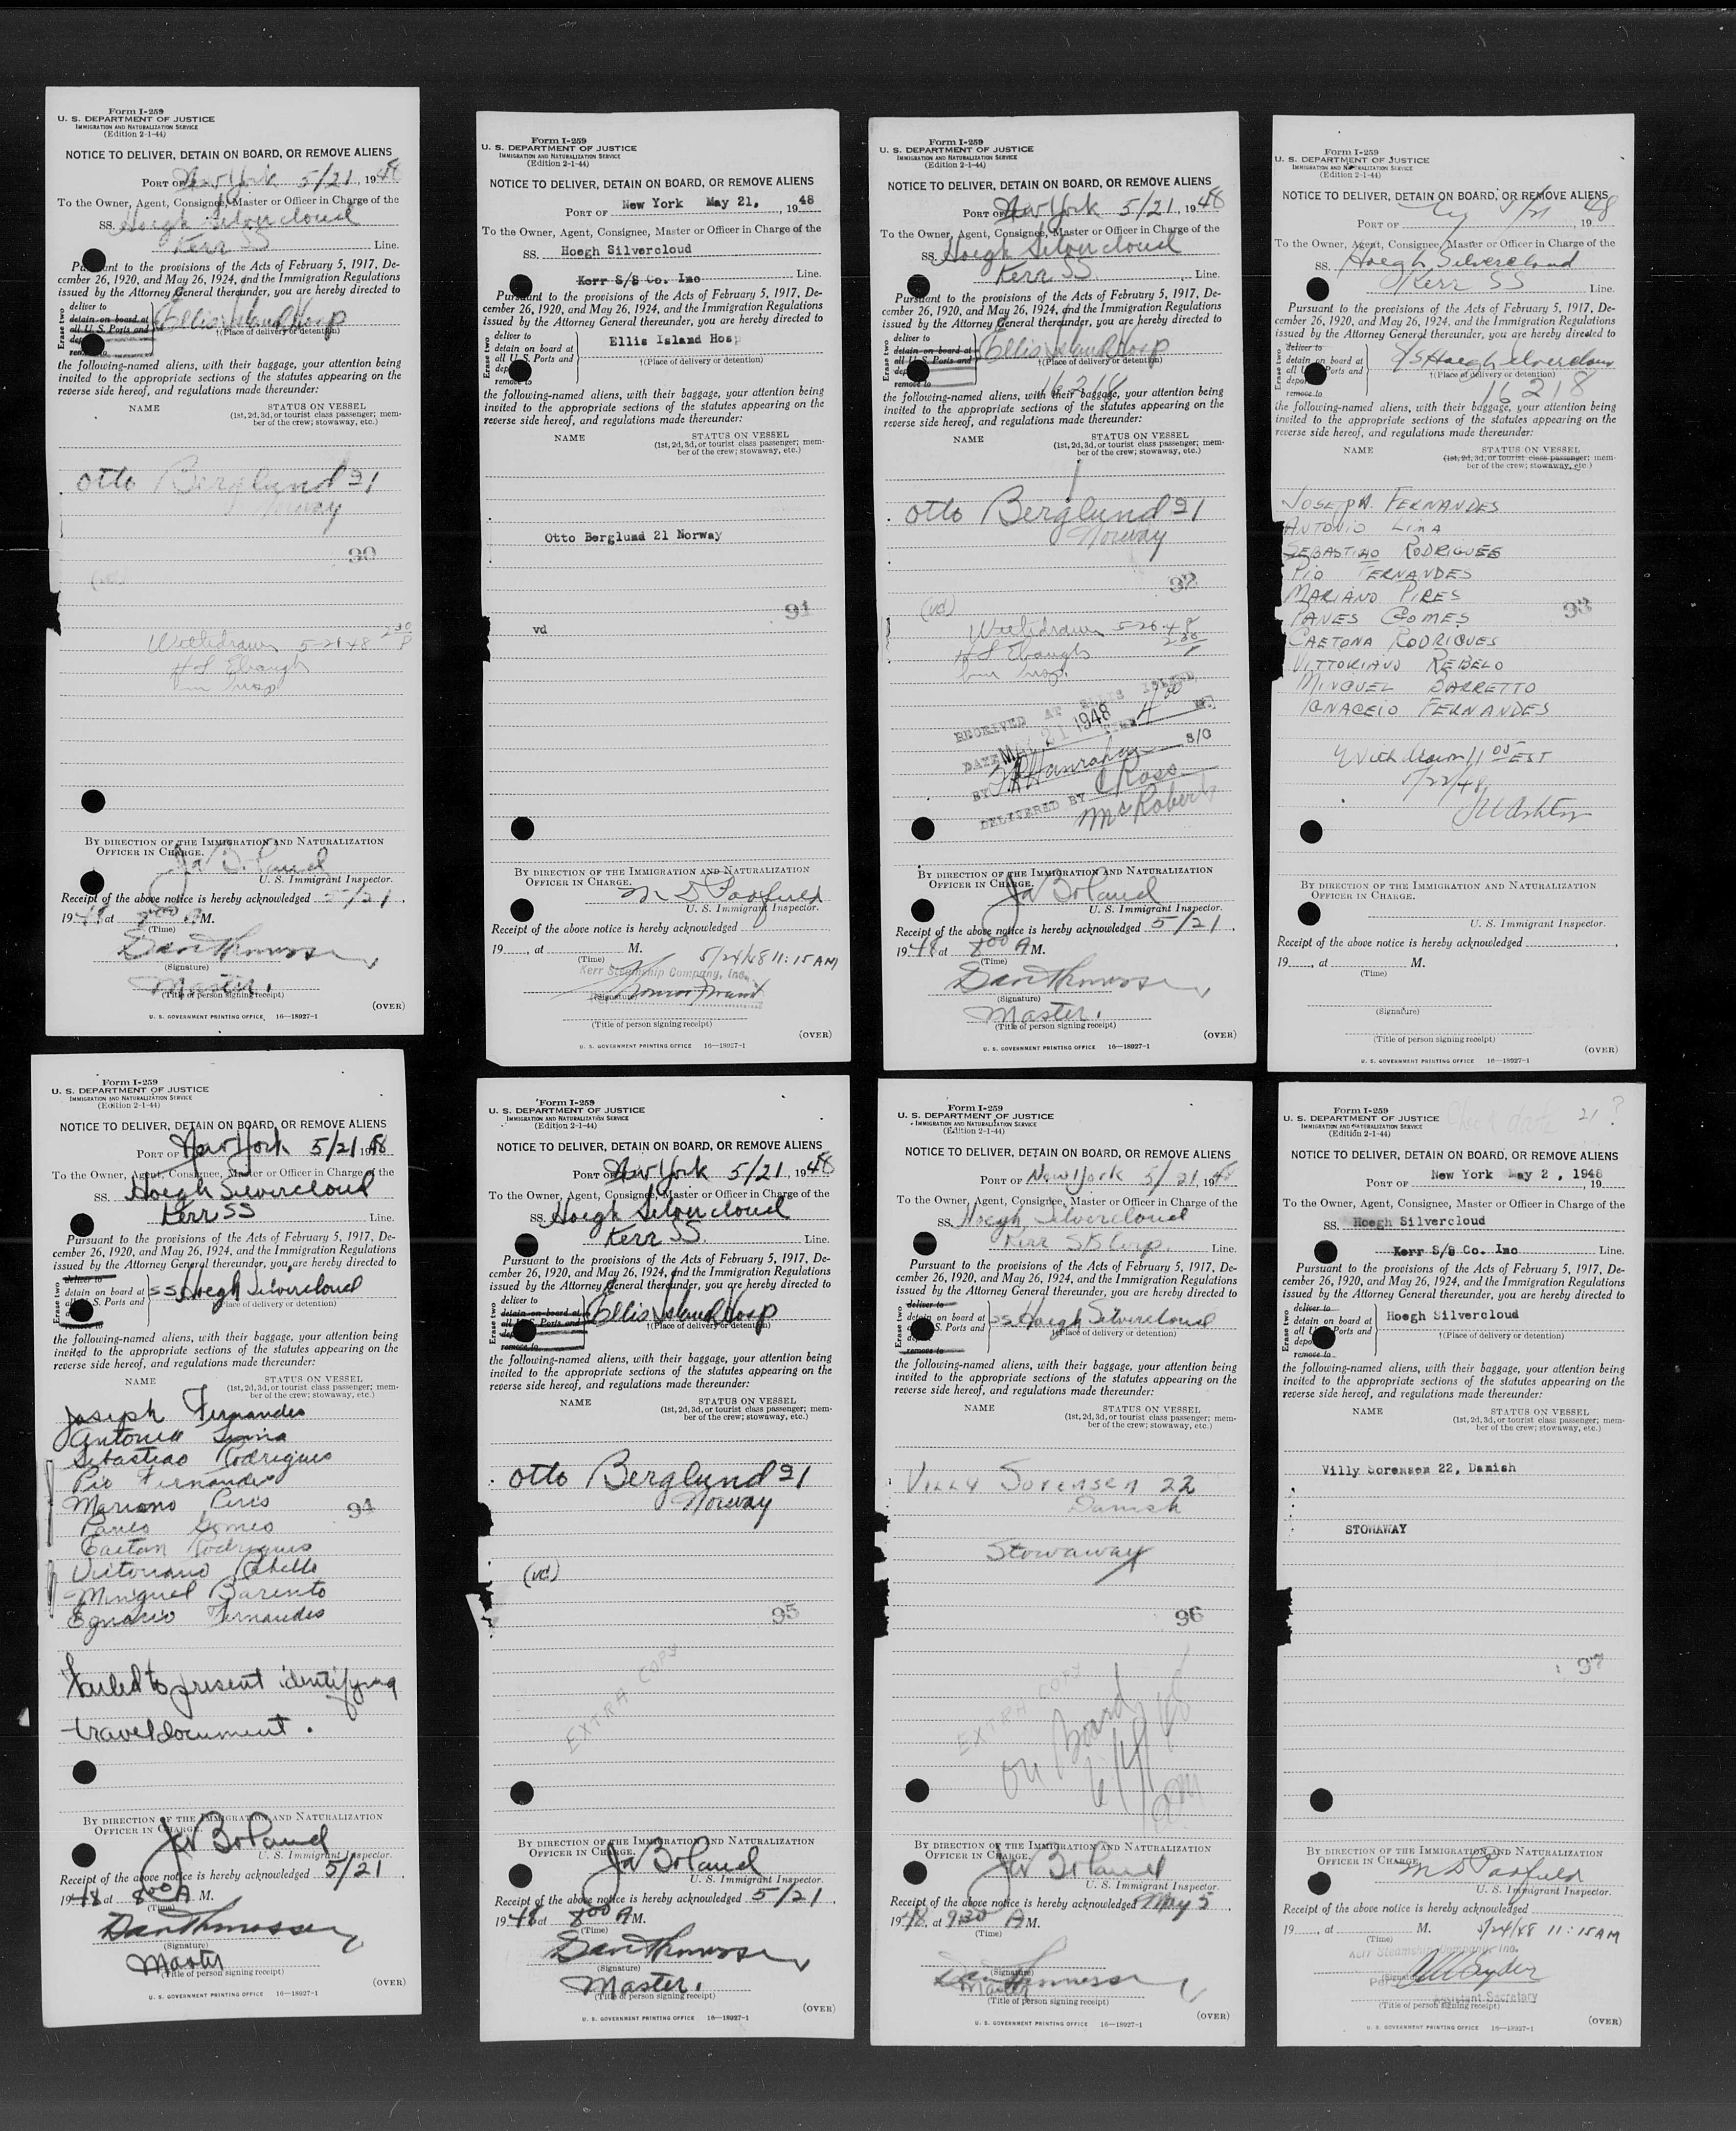 Form I-259
U. S. DEPARTMENT OF JUSTICE
IMMIGRATION AND NATURALIZATION SERVICE
(Edition 2-1-44)
NOTICE TO DELIVER, DETAIN ON BOARD, OR REMOVE ALIENS
PORT OF New York 5/21, 1948
To the Owner, Agent, Consignee, Master or Officer in Charge of the
SS. Hoegh Silvercloud
Kerr SS Line.
Pursuant to the provisions of the Acts of February 5, 1917, De-
cember 26, 1920, and May 26, 1924, and the Immigration Regulations
issued by the Attorney General thereunder, you are hereby directed to
Erase two
deliver to
detain on board at
all U. S. Ports and
remove to
Ellis Island Hosp
†(Place of delivery or detention)
the following-named aliens, with their baggage, your attention being
invited to the appropriate sections of the statutes appearing on the
reverse side hereof, and regulations made thereunder:
NAME STATUS ON VESSEL
(1st, 2d, 3d, or tourist class passenger; mem-
ber of the crew; stowaway, etc.)
Otto Berglund 21
Norway
90
(vd)
Withdrawn 5-21-48 2:30 P
H L Ebaugh
Imm Insp
BY DIRECTION OF THE IMMIGRATION AND NATURALIZATION
OFFICER IN CHARGE.
U. S. Immigrant Inspector.
Receipt of the above notice is hereby acknowledged 5/21,
1948 at 8:00 A M.
(Time)
(Signature)
Master.
(Title of person signing receipt)
(OVER)
U. S. GOVERNMENT PRINTING OFFICE 16—18927-1
Form I-259
U. S. DEPARTMENT OF JUSTICE
IMMIGRATION AND NATURALIZATION SERVICE
(Edition 2-1-44)
NOTICE TO DELIVER, DETAIN ON BOARD, OR REMOVE ALIENS
PORT OF New York May 21, 1948
To the Owner, Agent, Consignee, Master or Officer in Charge of the
SS. Hoegh Silvercloud
Kerr S/S Co. Inc Line.
Pursuant to the provisions of the Acts of February 5, 1917, De-
cember 26, 1920, and May 26, 1924, and the Immigration Regulations
issued by the Attorney General thereunder, you are hereby directed to
Erase two
deliver to
detain on board at
all U. S. Ports and
remove to
Ellis Island Hosp
†(Place of delivery or detention)
the following-named aliens, with their baggage, your attention being
invited to the appropriate sections of the statutes appearing on the
reverse side hereof, and regulations made thereunder:
NAME STATUS ON VESSEL
(1st, 2d, 3d, or tourist class passenger; mem-
ber of the crew; stowaway, etc.)
Otto Berglund 21 Norway
91
vd
BY DIRECTION OF THE IMMIGRATION AND NATURALIZATION
OFFICER IN CHARGE.
U. S. Immigrant Inspector.
Receipt of the above notice is hereby acknowledged
19 , at M.
(Time) 5/24/48 11:15 AM
Kerr Steamship Company, Inc.
(Signature)
(Title of person signing receipt)
(OVER)
U. S. GOVERNMENT PRINTING OFFICE 16—18927-1
Form I-259
U. S. DEPARTMENT OF JUSTICE
IMMIGRATION AND NATURALIZATION SERVICE
(Edition 2-1-44)
NOTICE TO DELIVER, DETAIN ON BOARD, OR REMOVE ALIENS
PORT OF New York 5/21, 1948
To the Owner, Agent, Consignee, Master or Officer in Charge of the
SS. Hoegh Silvercloud
Kerr SS. Line.
Pursuant to the provisions of the Acts of February 5, 1917, De-
cember 26, 1920, and May 26, 1924, and the Immigration Regulations
issued by the Attorney General thereunder, you are hereby directed to
Erase two
deliver to
detain on board at
all U. S. Ports and
remove to
Ellis Island Hosp
†(Place of delivery or detention)
16218
the following-named aliens, with their baggage, your attention being
invited to the appropriate sections of the statutes appearing on the
reverse side hereof, and regulations made thereunder:
NAME STATUS ON VESSEL
(1st, 2d, 3d, or tourist class passenger; mem-
ber of the crew; stowaway, etc.)
Otto Berglund 21
Norway
92
(vd)
Withdrawn 5-26-48
H L Ebaugh 2:30 P
Imm Insp.
RECEIVED AT ELLIS ISLAND
DATE MAY 21 1948 TIME 4:00 M.
BY Hanrahan S/O
DELIVERED BY C Ross
McRoberts
BY DIRECTION OF THE IMMIGRATION AND NATURALIZATION
OFFICER IN CHARGE.
U. S. Immigrant Inspector.
Receipt of the above notice is hereby acknowledged 5/21,
1948 at 8:00 A M.
(Time)
(Signature)
Master.
(Title of person signing receipt)
(OVER)
U. S. GOVERNMENT PRINTING OFFICE 16—18927-1
Form I-259
U. S. DEPARTMENT OF JUSTICE
IMMIGRATION AND NATURALIZATION SERVICE
(Edition 2-1-44)
NOTICE TO DELIVER, DETAIN ON BOARD, OR REMOVE ALIENS
PORT OF NY 5/21, 1948
To the Owner, Agent, Consignee, Master or Officer in Charge of the
SS. Hoegh Silvercloud
Kerr SS Line.
Pursuant to the provisions of the Acts of February 5, 1917, De-
cember 26, 1920, and May 26, 1924, and the Immigration Regulations
issued by the Attorney General thereunder, you are hereby directed to
Erase two
deliver to
detain on board at
all U. S. Ports and
remove to
Hoegh Silvercloud
†(Place of delivery or detention)
16218
the following-named aliens, with their baggage, your attention being
invited to the appropriate sections of the statutes appearing on the
reverse side hereof, and regulations made thereunder:
NAME STATUS ON VESSEL
(1st, 2d, 3d, or tourist class passenger; mem-
ber of the crew; stowaway, etc.)
JOSEPH FERNANDES
ANTONIO LIMA
SEBASTIAO RODRIGUES
PIO FERNANDES
MARIANO PIRES
PAVES GOMES
CAETONA RODRIGUES
VITTORIANO REBELO
MINGUEL BARRETTO
IGNACEIO FERNANDES
93
Withdrawn 11:05 EST
5/22/48
BY DIRECTION OF THE IMMIGRATION AND NATURALIZATION
OFFICER IN CHARGE.
U. S. Immigrant Inspector.
Receipt of the above notice is hereby acknowledged
19 , at M.
(Time)
(Signature)
(Title of person signing receipt)
(OVER)
U. S. GOVERNMENT PRINTING OFFICE 16—18927-1
Form I-259
U. S. DEPARTMENT OF JUSTICE
IMMIGRATION AND NATURALIZATION SERVICE
(Edition 2-1-44)
NOTICE TO DELIVER, DETAIN ON BOARD, OR REMOVE ALIENS
PORT OF New York 5/21 1948
To the Owner, Agent, Consignee, Master or Officer in Charge of the
SS. Hoegh Silvercloud
Kerr SS Line.
Pursuant to the provisions of the Acts of February 5, 1917, De-
cember 26, 1920, and May 26, 1924, and the Immigration Regulations
issued by the Attorney General thereunder, you are hereby directed to
Erase two
deliver to
detain on board at
all U. S. Ports and
remove to
SS Hoegh Silvercloud
(Place of delivery or detention)
the following-named aliens, with their baggage, your attention being
invited to the appropriate sections of the statutes appearing on the
reverse side hereof, and regulations made thereunder:
NAME STATUS ON VESSEL
(1st, 2d, 3d, or tourist class passenger; mem-
ber of the crew; stowaway, etc.)
Joseph Fernandes
Antonia Lima
Sebastiao Rodrigues
Pio Fernandes
Mariano Pires
94
Paulo Gomes
Caetan Rodrigues
Victoriano Rebello
Minguel Barento
Egnacio Fernandes
Failed to present identifying
travel document.
BY DIRECTION OF THE IMMIGRATION AND NATURALIZATION
OFFICER IN CHARGE.
U. S. Immigrant Inspector.
Receipt of the above notice is hereby acknowledged 5/21
1948 at 8:00 A M.
(Time)
(Signature)
Master
(Title of person signing receipt)
(OVER)
U. S. GOVERNMENT PRINTING OFFICE 16—18927-1
Form I-259
U. S. DEPARTMENT OF JUSTICE
IMMIGRATION AND NATURALIZATION SERVICE
(Edition 2-1-44)
NOTICE TO DELIVER, DETAIN ON BOARD, OR REMOVE ALIENS
PORT OF New York 5/21, 1948
To the Owner, Agent, Consignee, Master or Officer in Charge of the
SS. Hoegh Silvercloud
Kerr SS. Line.
Pursuant to the provisions of the Acts of February 5, 1917, De-
cember 26, 1920, and May 26, 1924, and the Immigration Regulations
issued by the Attorney General thereunder, you are hereby directed to
Erase two
deliver to
detain on board at
all U. S. Ports and
remove to
Ellis Island Hosp
†(Place of delivery or detention)
the following-named aliens, with their baggage, your attention being
invited to the appropriate sections of the statutes appearing on the
reverse side hereof, and regulations made thereunder:
NAME STATUS ON VESSEL
(1st, 2d, 3d, or tourist class passenger; mem-
ber of the crew; stowaway, etc.)
Otto Berglund 21
Norway
(vd)
95
EXTRA COPY
BY DIRECTION OF THE IMMIGRATION AND NATURALIZATION
OFFICER IN CHARGE.
U. S. Immigrant Inspector.
Receipt of the above notice is hereby acknowledged 5/21,
1948 at 8:00 A M.
(Time)
(Signature)
Master.
(Title of person signing receipt)
(OVER)
U. S. GOVERNMENT PRINTING OFFICE 16—18927-1
Form I-259
U. S. DEPARTMENT OF JUSTICE
IMMIGRATION AND NATURALIZATION SERVICE
(Edition 2-1-44)
NOTICE TO DELIVER, DETAIN ON BOARD, OR REMOVE ALIENS
PORT OF New York 5/21, 1948
To the Owner, Agent, Consignee, Master or Officer in Charge of the
SS. Hoegh Silvercloud
Kerr SS Corp. Line.
Pursuant to the provisions of the Acts of February 5, 1917, De-
cember 26, 1920, and May 26, 1924, and the Immigration Regulations
issued by the Attorney General thereunder, you are hereby directed to
Erase two
deliver to
detain on board at
all U. S. Ports and
remove to
SS Hoegh Silvercloud
†(Place of delivery or detention)
the following-named aliens, with their baggage, your attention being
invited to the appropriate sections of the statutes appearing on the
reverse side hereof, and regulations made thereunder:
NAME STATUS ON VESSEL
(1st, 2d, 3d, or tourist class passenger; mem-
ber of the crew; stowaway, etc.)
Villy Sorensen 22
Danish
Stowaway
96
EXTRA COPY
On Board
BY DIRECTION OF THE IMMIGRATION AND NATURALIZATION
OFFICER IN CHARGE.
U. S. Immigrant Inspector.
Receipt of the above notice is hereby acknowledged May 5
1948, at 9:30 A M.
(Time)
(Signature)
Master
(Title of person signing receipt)
(OVER)
U. S. GOVERNMENT PRINTING OFFICE 16—18927-1
Form I-259
U. S. DEPARTMENT OF JUSTICE
IMMIGRATION AND NATURALIZATION SERVICE
(Edition 2-1-44)
Check date 21 ?
NOTICE TO DELIVER, DETAIN ON BOARD, OR REMOVE ALIENS
New York May 2 , 1948
PORT OF , 19
To the Owner, Agent, Consignee, Master or Officer in Charge of the
SS. Hoegh Silvercloud
Kerr S/S Co. Inc Line.
Pursuant to the provisions of the Acts of February 5, 1917, De-
cember 26, 1920, and May 26, 1924, and the Immigration Regulations
issued by the Attorney General thereunder, you are hereby directed to
Erase two
deliver to
detain on board at
all U. S. Ports and
remove to
Hoegh Silvercloud
†(Place of delivery or detention)
the following-named aliens, with their baggage, your attention being
invited to the appropriate sections of the statutes appearing on the
reverse side hereof, and regulations made thereunder:
NAME STATUS ON VESSEL
(1st, 2d, 3d, or tourist class passenger; mem-
ber of the crew; stowaway, etc.)
Villy Sorensen 22, Danish
STOWAWAY
97
BY DIRECTION OF THE IMMIGRATION AND NATURALIZATION
OFFICER IN CHARGE.
U. S. Immigrant Inspector.
Receipt of the above notice is hereby acknowledged
19 , at M.
(Time) 5/24/48 11:15 AM
Kerr Steamship Company, Inc.
(Signature)
Assistant Secretary
(Title of person signing receipt)
(OVER)
U. S. GOVERNMENT PRINTING OFFICE 16—18927-1